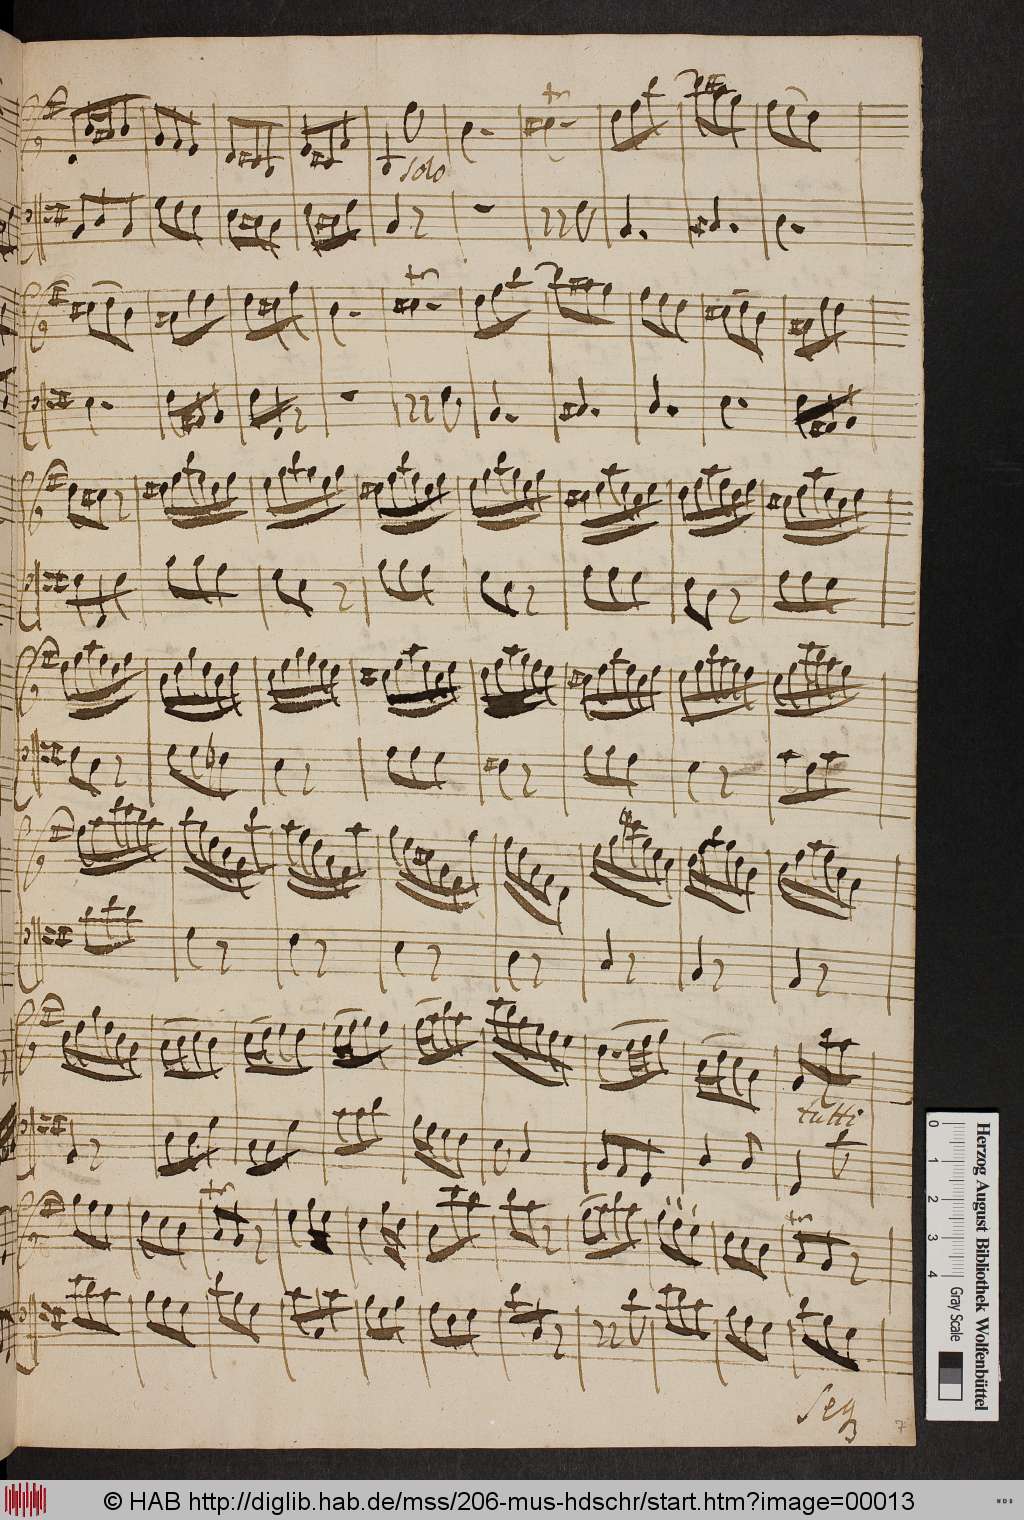 solo
tutti
Seq
Herzog August Bibliothek Wolfenbüttel
0 1 2 3 4
Gray Scale
© HAB http://diglib.hab.de/mss/206-mus-hdschr/start.htm?image=00013